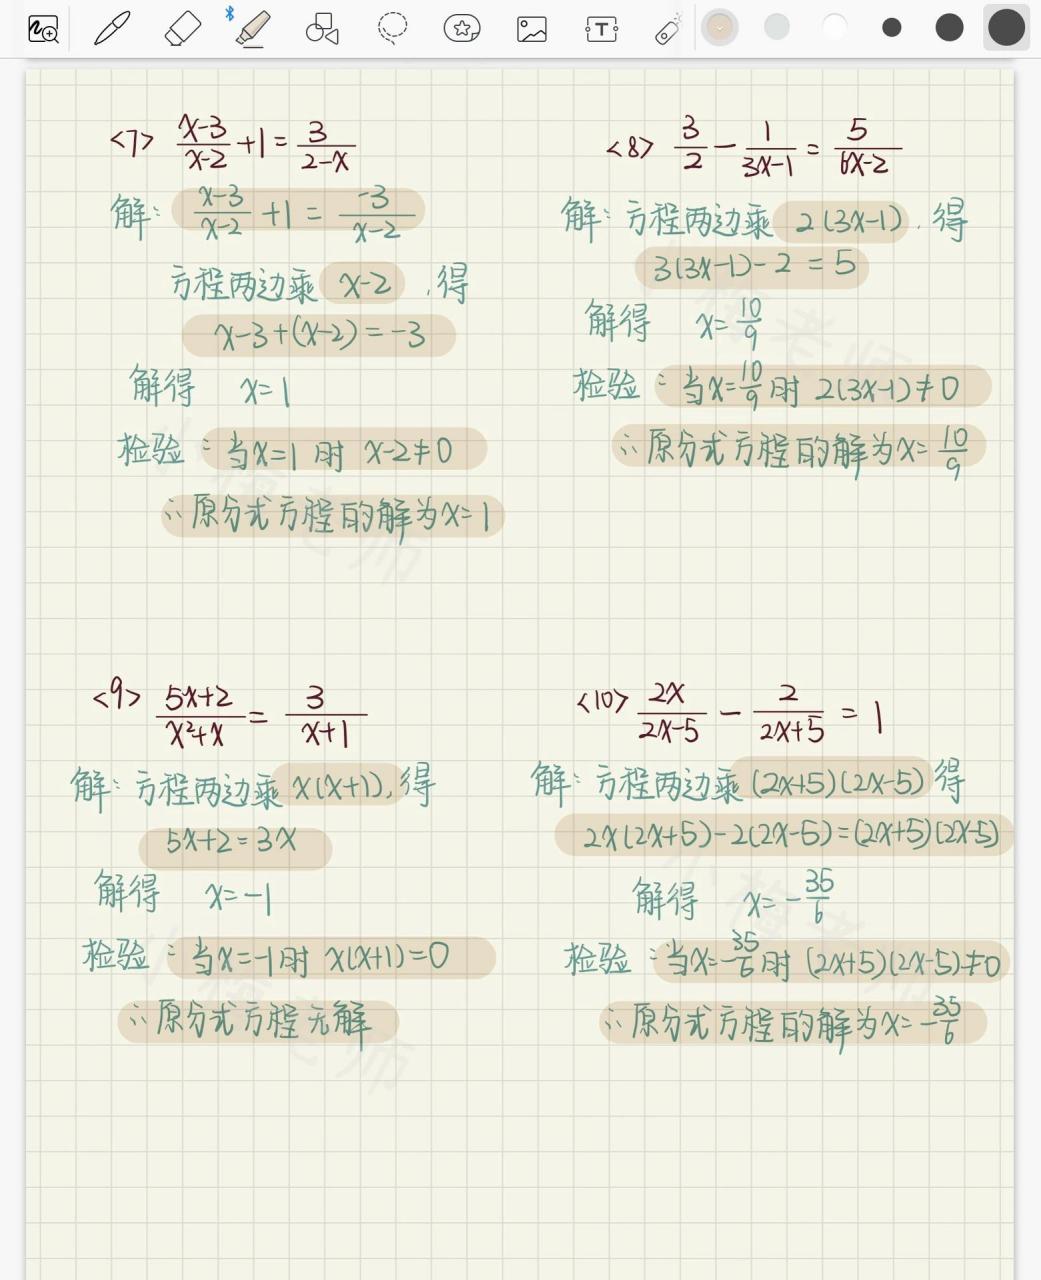 <7> (x-3)/(x-2) + 1 = 3/(2-x)
解: (x-3)/(x-2) + 1 = -3/(x-2)
方程两边乘 x-2 ,得
x-3+(x-2)=-3
解得 x=1
检验:当x=1时 x-2≠0
∴原分式方程的解为x=1
<8> 3/2 - 1/(3x-1) = 5/(6x-2)
解:方程两边乘 2(3x-1),得
3(3x-1)-2=5
解得 x=10/9
检验:当x=10/9时 2(3x-1)≠0
∴原分式方程的解为x=10/9
<9> (5x+2)/(x²+x) = 3/(x+1)
解:方程两边乘x(x+1),得
5x+2=3x
解得 x=-1
检验:当x=-1时 x(x+1)=0
∴原分式方程无解
<10> 2x/(2x-5) - 2/(2x+5) = 1
解:方程两边乘(2x+5)(2x-5)得
2x(2x+5)-2(2x-5)=(2x+5)(2x-5)
解得 x=-35/6
检验:当x=-35/6时 (2x+5)(2x-5)≠0
∴原分式方程的解为x=-35/6
小梅老师
小梅老师
小梅老师
小梅老师